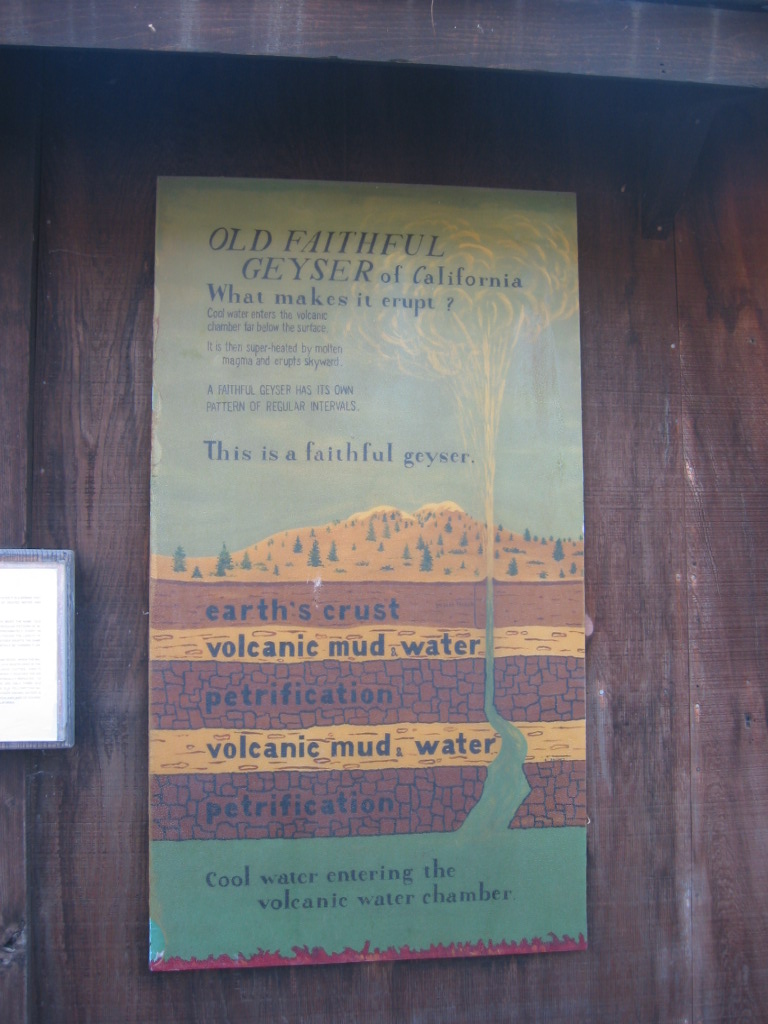 OLD FAITHFUL
GEYSER of California
What makes it erupt ?
Cool water enters the volcanic
chamber far below the surface.
It is then super-heated by molten
magma and erupts skyward.
A FAITHFUL GEYSER HAS ITS OWN
PATTERN OF REGULAR INTERVALS.
This is a faithful geyser.
earth's crust
volcanic mud & water
petrification
volcanic mud & water
petrification
Cool water entering the
volcanic water chamber.